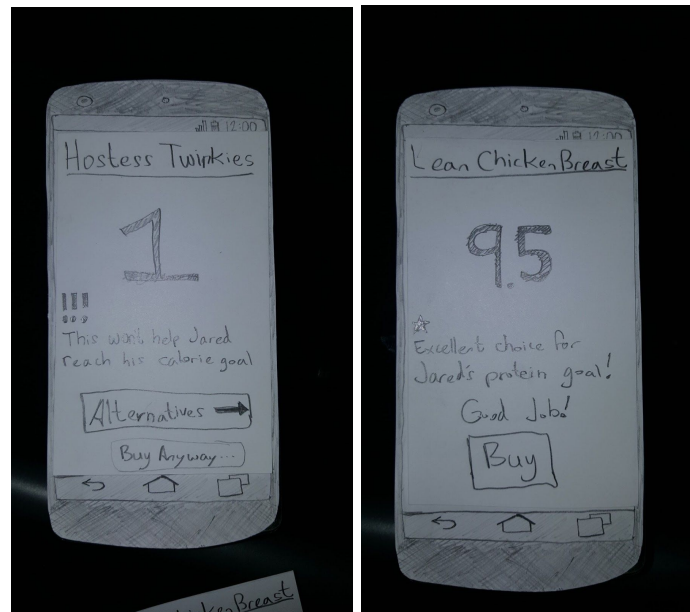 12:00
Hostess Twinkies
1
!!!
This won't help Jared
reach his calorie goal
Alternatives
Buy Anyway...
Chicken Breast
12:00
Lean Chicken Breast
9.5
Excellent choice for
Jared's protein goal!
Good Job!
Buy